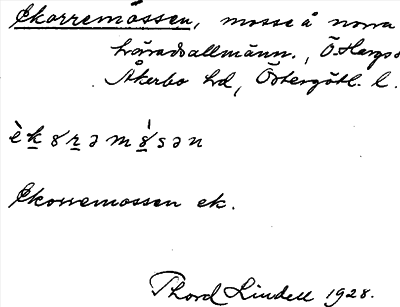 Ekorremossen, mosse å norra
häradsallmänn., Ö. Hargs
Åkerbo hd, Östergötl. l.
Ekorremossen ek.
Thord Lindell 1928.